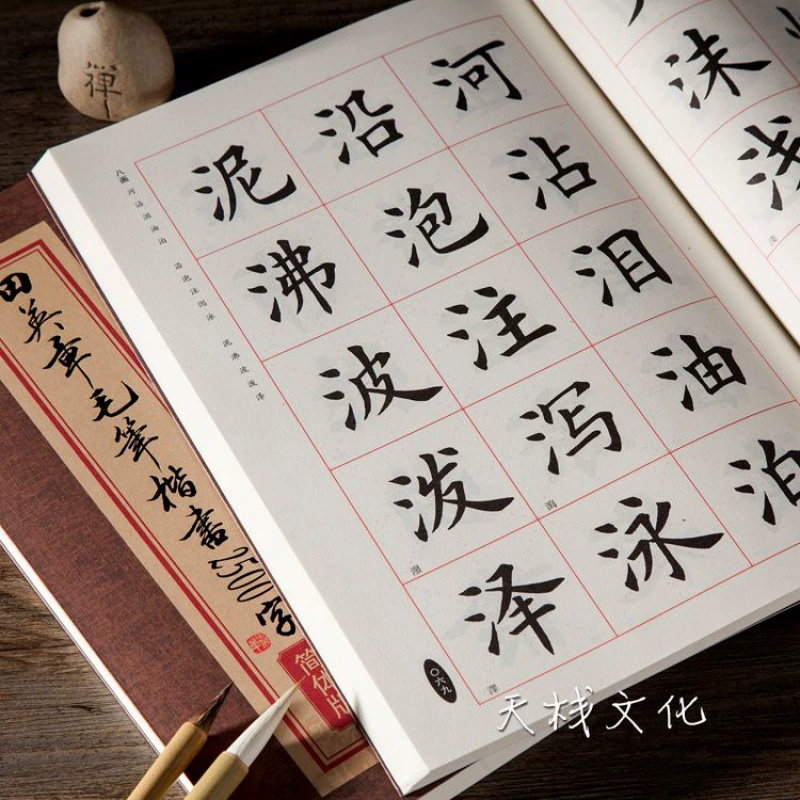 禅
沫
浅
河沾泪油泊
沿泡注泻泳
瀉
泥沸波泼泽
潑
澤
八画 河沾泪油泊 沿泡注泻泳 泥沸波泼泽
〇六九
田英章毛筆楷書2500字
简体版
天栈文化